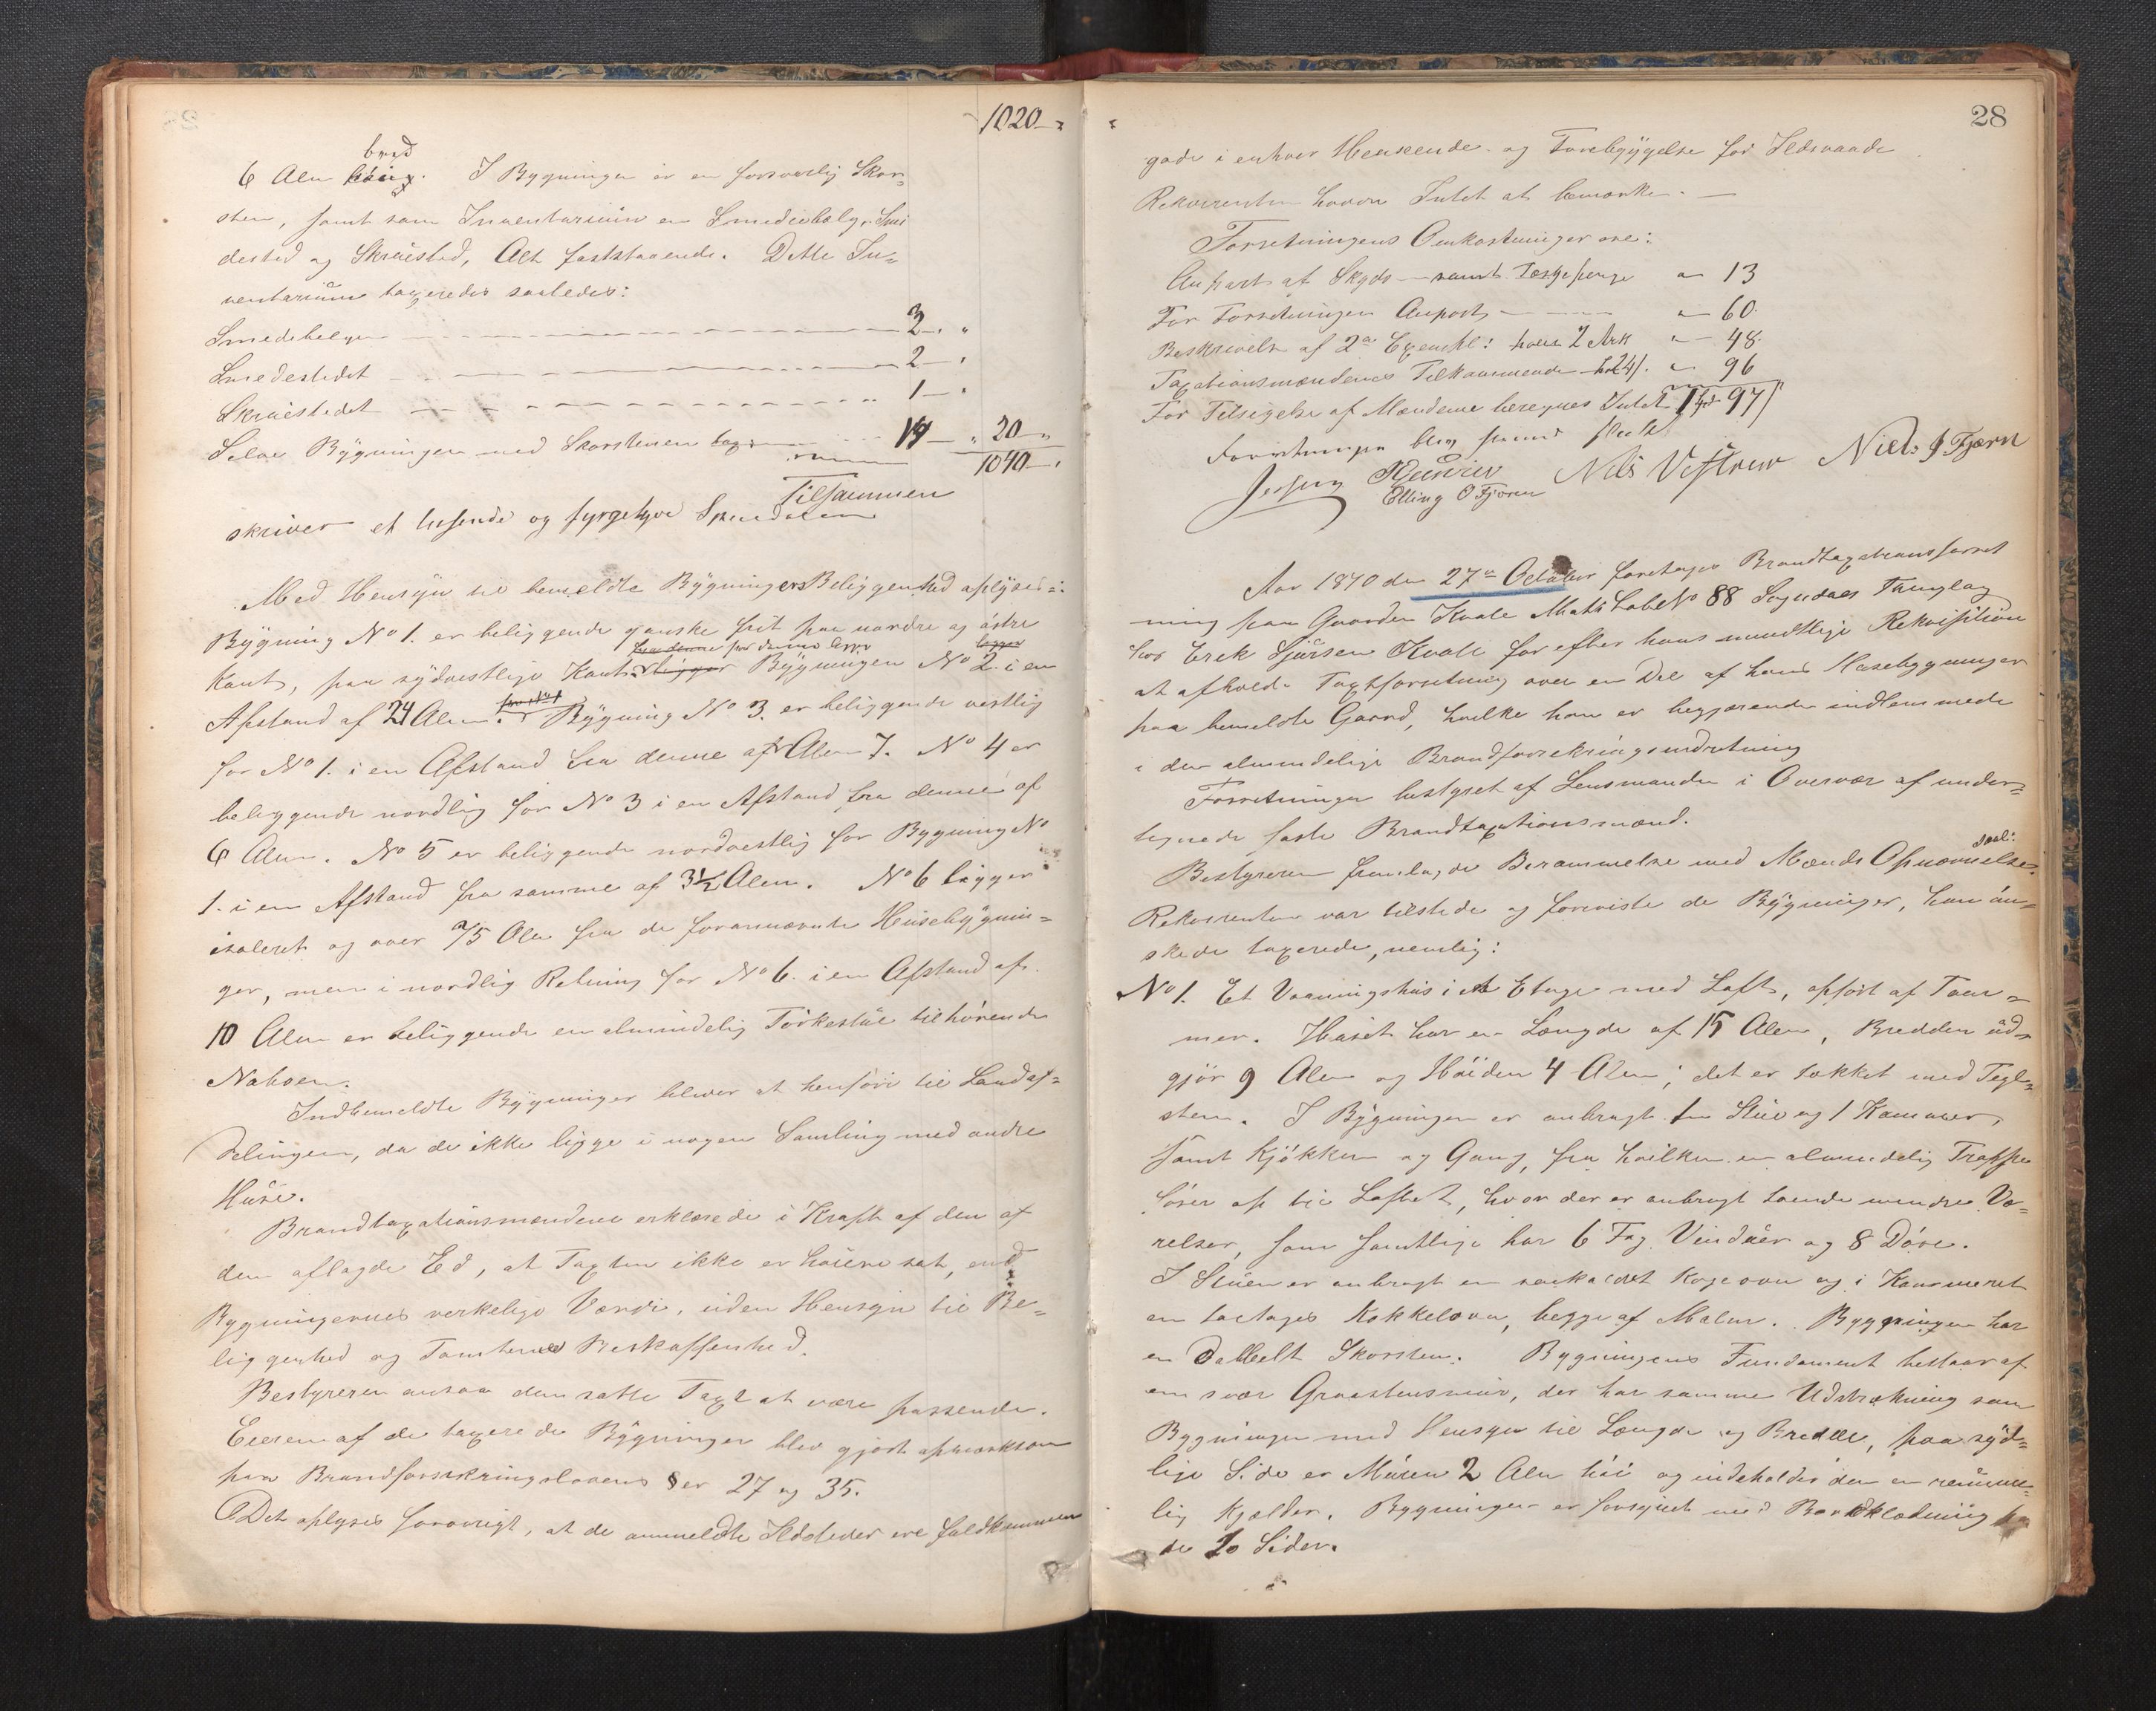 1020
6 Alen bred høix. I Bygningen er en forsvarlig Skor-
sten, samt som Inventarium en Smediebælg, Smi
dested og Skruested, Alt faststaaende. Dette In-
ventarium taxeredes saaledes:
Smedebelgen 3 "
Smedestedet 2 "
Skruestedet 1 "
Selve Bygningen med Skorstenen tax 14 " 20 "
1040 "
Tilsammen
skriver et tusende og fyrgetyve Speciedaler
Med Hensyn til bemeldte Bygningers Beliggenhed oplyses:
Bygning No 1. er beliggende ganske frit paa nordre og østre
Kant, paa sydvestlige Kant ligger Bygningen No 2. i en
Afstand af 24 Alen. Bygning No 3. er beliggende vestlig
for No 1. i en Afstand fra denne af Alen 7. No 4 er
beliggende nordlig for No 3 i en Afstand fra denne af
6 Alen. No 5 er beliggende nordvestlig for Bygning No
1. i en Afstand fra samme af 3½ Alen. No 6 ligger
isoleret og over 75 Alen fra de forannævnte Husebygnin-
ger, men i nordlig Retning for No 6. i en Afstand af
10 Alen er beliggende en almindelig Tørkestue tilhørende
Naboen.
Indbemeldte Bygninger bliver at henføre til Landaf-
delingen, da de ikke ligge i nogen Samling med andre
Huse.
Brandtaxationsmændene erklærede i Kraft af den af
dem aflagde Ed, at Taxten ikke er høiere sat, end
Bygningernes verkelige Værdi, uden Hensyn til Be-
liggenhed og Tomternes Beskaffenhed.
Bestyreren ansaa den satte Taxt at være passende.
Eieren af de taxerede Bygninger blev gjort opmærksom
paa Brandforsikringslovens §er 27 og 35.
Det oplyses forøvrigt, at de anmeldte Ildsteder ere fuldkommen
28
gode i enhver Henseende og Forebyggelse for Ildsvaade
Rekvirenten havde Intet at bemærke.
Forretningens Omkostninger ere:
Anpart af Skyds samt Tærgepenge " 13
For Forretningen Anpart " 60.
Beskrivelse af 2de Exempl: hver 2 Ark " 48.
Taxationsmændenes Tilkommende 24 " 96
For Tilsigelse af Mændene beregnes Intet 1 97
Forretningen blev saamed sluttet
Elling O Fjøren Nils Vestrem Niels J Fjærn
Aar 1870 den 27de October foretoges Brandtaxationsforret
ning paa Gaarden Kvale Matr Løbe No 88 Sogndals Thinglag
hos Erek Sjursen Kvale for efter hans mundtlige Rekvisition
at afholde Taxtforretning over en Del af hans Husebygninger
paa bemeldte Gaard, hvilke han er begjærende indlemmede
i den almindelige Brandforsikringsindretning
Forretningen bestyret af Lensmanden i Overvær af under-
tegnede faste Brandtaxationsmænd.
Bestyreren fremlagde Berammelse med Mænds Opnævnelse. saal:
Rekvirenten var tilstede og foreviste de Bygninger, han øn-
skede taxerede, nemlig:
No 1. Et Vaaningshus i et Etage med Loft, opført af Tøm-
mer. Huset har en Længde af 15 Alen, Bredden ud-
gjør 9 Alen og Høiden 4 Alen; det er tækket med Tegl-
sten. I Bygningen er anbragt 1 Stue og 1 Kammer,
samt Kjøkken og Gang, fra hvilken en almindelig Trappe
fører op til Loftet, hvor der er anbragt tvende mindre Væ-
relser, som samtlige har 6 Fag Vinduer og 8 Døre.
I Stuen er anbragt en saakaldet Kogeovn og i Kammeret
en toetages Kakkelovn, begge af Malm. Bygningen har
en Dobbelt Skorsten. Bygningens Fundament bestaar af
en svær Graastensmuur, der har samme Udstrækning som
Bygningen med Hensyn til Længde og Bredde, paa syd-
lige Side er Muren 2 Alen høi og indeholder den en rumme-
lig Kjælder. Bygningen er forsynet med Bordklædning paa
de 2o Sider.